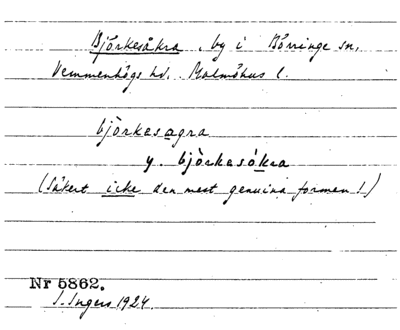 Björkesåkra, by i Börringe sn,
Vemmenhögs hd. Malmöhus l.
bjòrkesagra
y. bjòrkesókra
(Säkert icke den mest genuina formen!)
Nr 5862.
I. Ingers 1924.